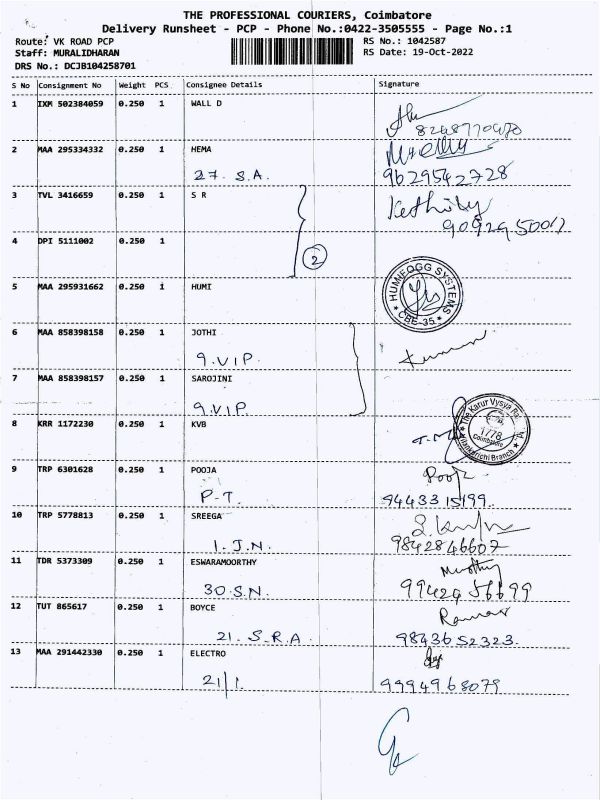 THE PROFESSIONAL COURIERS, Coimbatore
Delivery Runsheet - PCP - Phone No.:0422-3505555 - Page No.:1
Route: VK ROAD PCP RS No.: 1042587
Staff: MURALIDHARAN RS Date: 19-Oct-2022
DRS No.: DCJB104258701
S No Consignment No Weight PCS Consignee Details Signature
1 IXM 502384059 0.250 1 WALL D
2 MAA 295334332 0.250 1 HEMA
27. S.A. 9629542728
3 TVL 3416659 0.250 1 S R
4 DPI 5111002 0.250 1
2
5 MAA 295931662 0.250 1 HUMI
HUMIFOGG SYSTEMS
CBE-35
6 MAA 858398158 0.250 1 JOTHI
9.VIP.
7 MAA 858398157 0.250 1 SAROJINI
9.VIP.
8 KRR 1172230 0.250 1 KVB
The Karur Vysya
1778
Coimbatore
Branch
9 TRP 6301628 0.250 1 POOJA Pooja
P-T. 9443315199.
10 TRP 5778813 0.250 1 SREEGA
1. J.N. 9842846607
11 TDR 5373309 0.250 1 ESWARAMOORTHY
30.S.N. 9942956699
12 TUT 865617 0.250 1 BOYCE
21. S.R.A. 9843652323.
13 MAA 291442330 0.250 1 ELECTRO
21/1. 9994968079